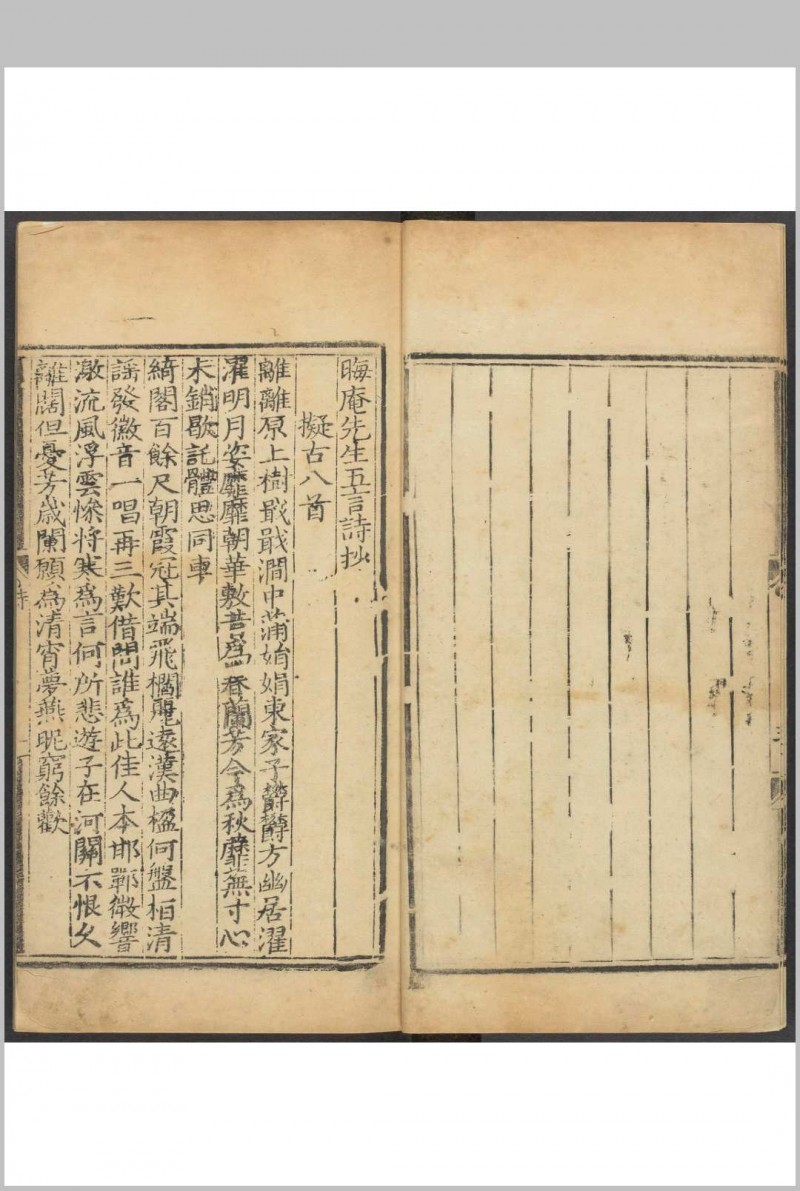 晦庵先生五言詩抄
擬古八首
離離原上樹戢戢澗中蒲娟娟東家子鬱鬱方幽居濯
濯明月姿靡靡朝華敷昔為春蘭芳今為秋蘼蕪寸心
未銷歇託體思同車
綺閣百餘尺朝霞冠其端飛櫩麗遠漢曲楹何盤桓清
謡發徽音一唱再三歎借問誰為此佳人本邯鄲微響
激流風浮雲慘將寒為言何所悲遊子在河關不恨久
離闊但憂芳歲闌願為清宵夢燕昵窮餘歡
詩
一